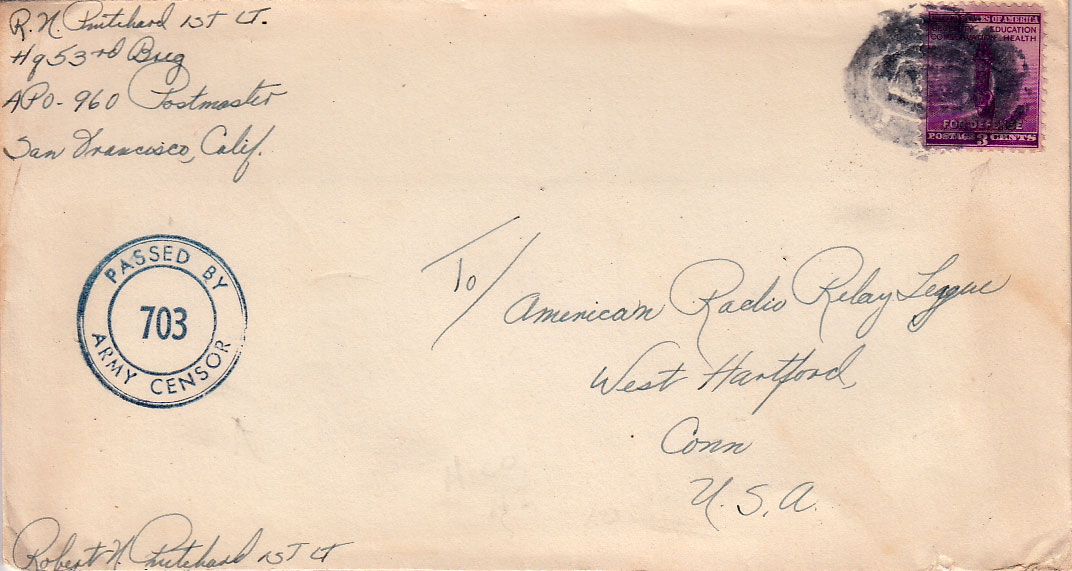 R. N. Pritchard 1ST LT.
Hq 53rd Brig
APO - 960 Postmaster
San Francisco, Calif.
ES OF AMERICA
EDUCATION
HEALTH
FOR DEFENSE
POSTAGE 3 CENTS
PASSED BY
703
ARMY CENSOR
To/
American Radio Relay League
West Hartford,
Conn
U.S.A.
Robert N. Pritchard 1ST LT